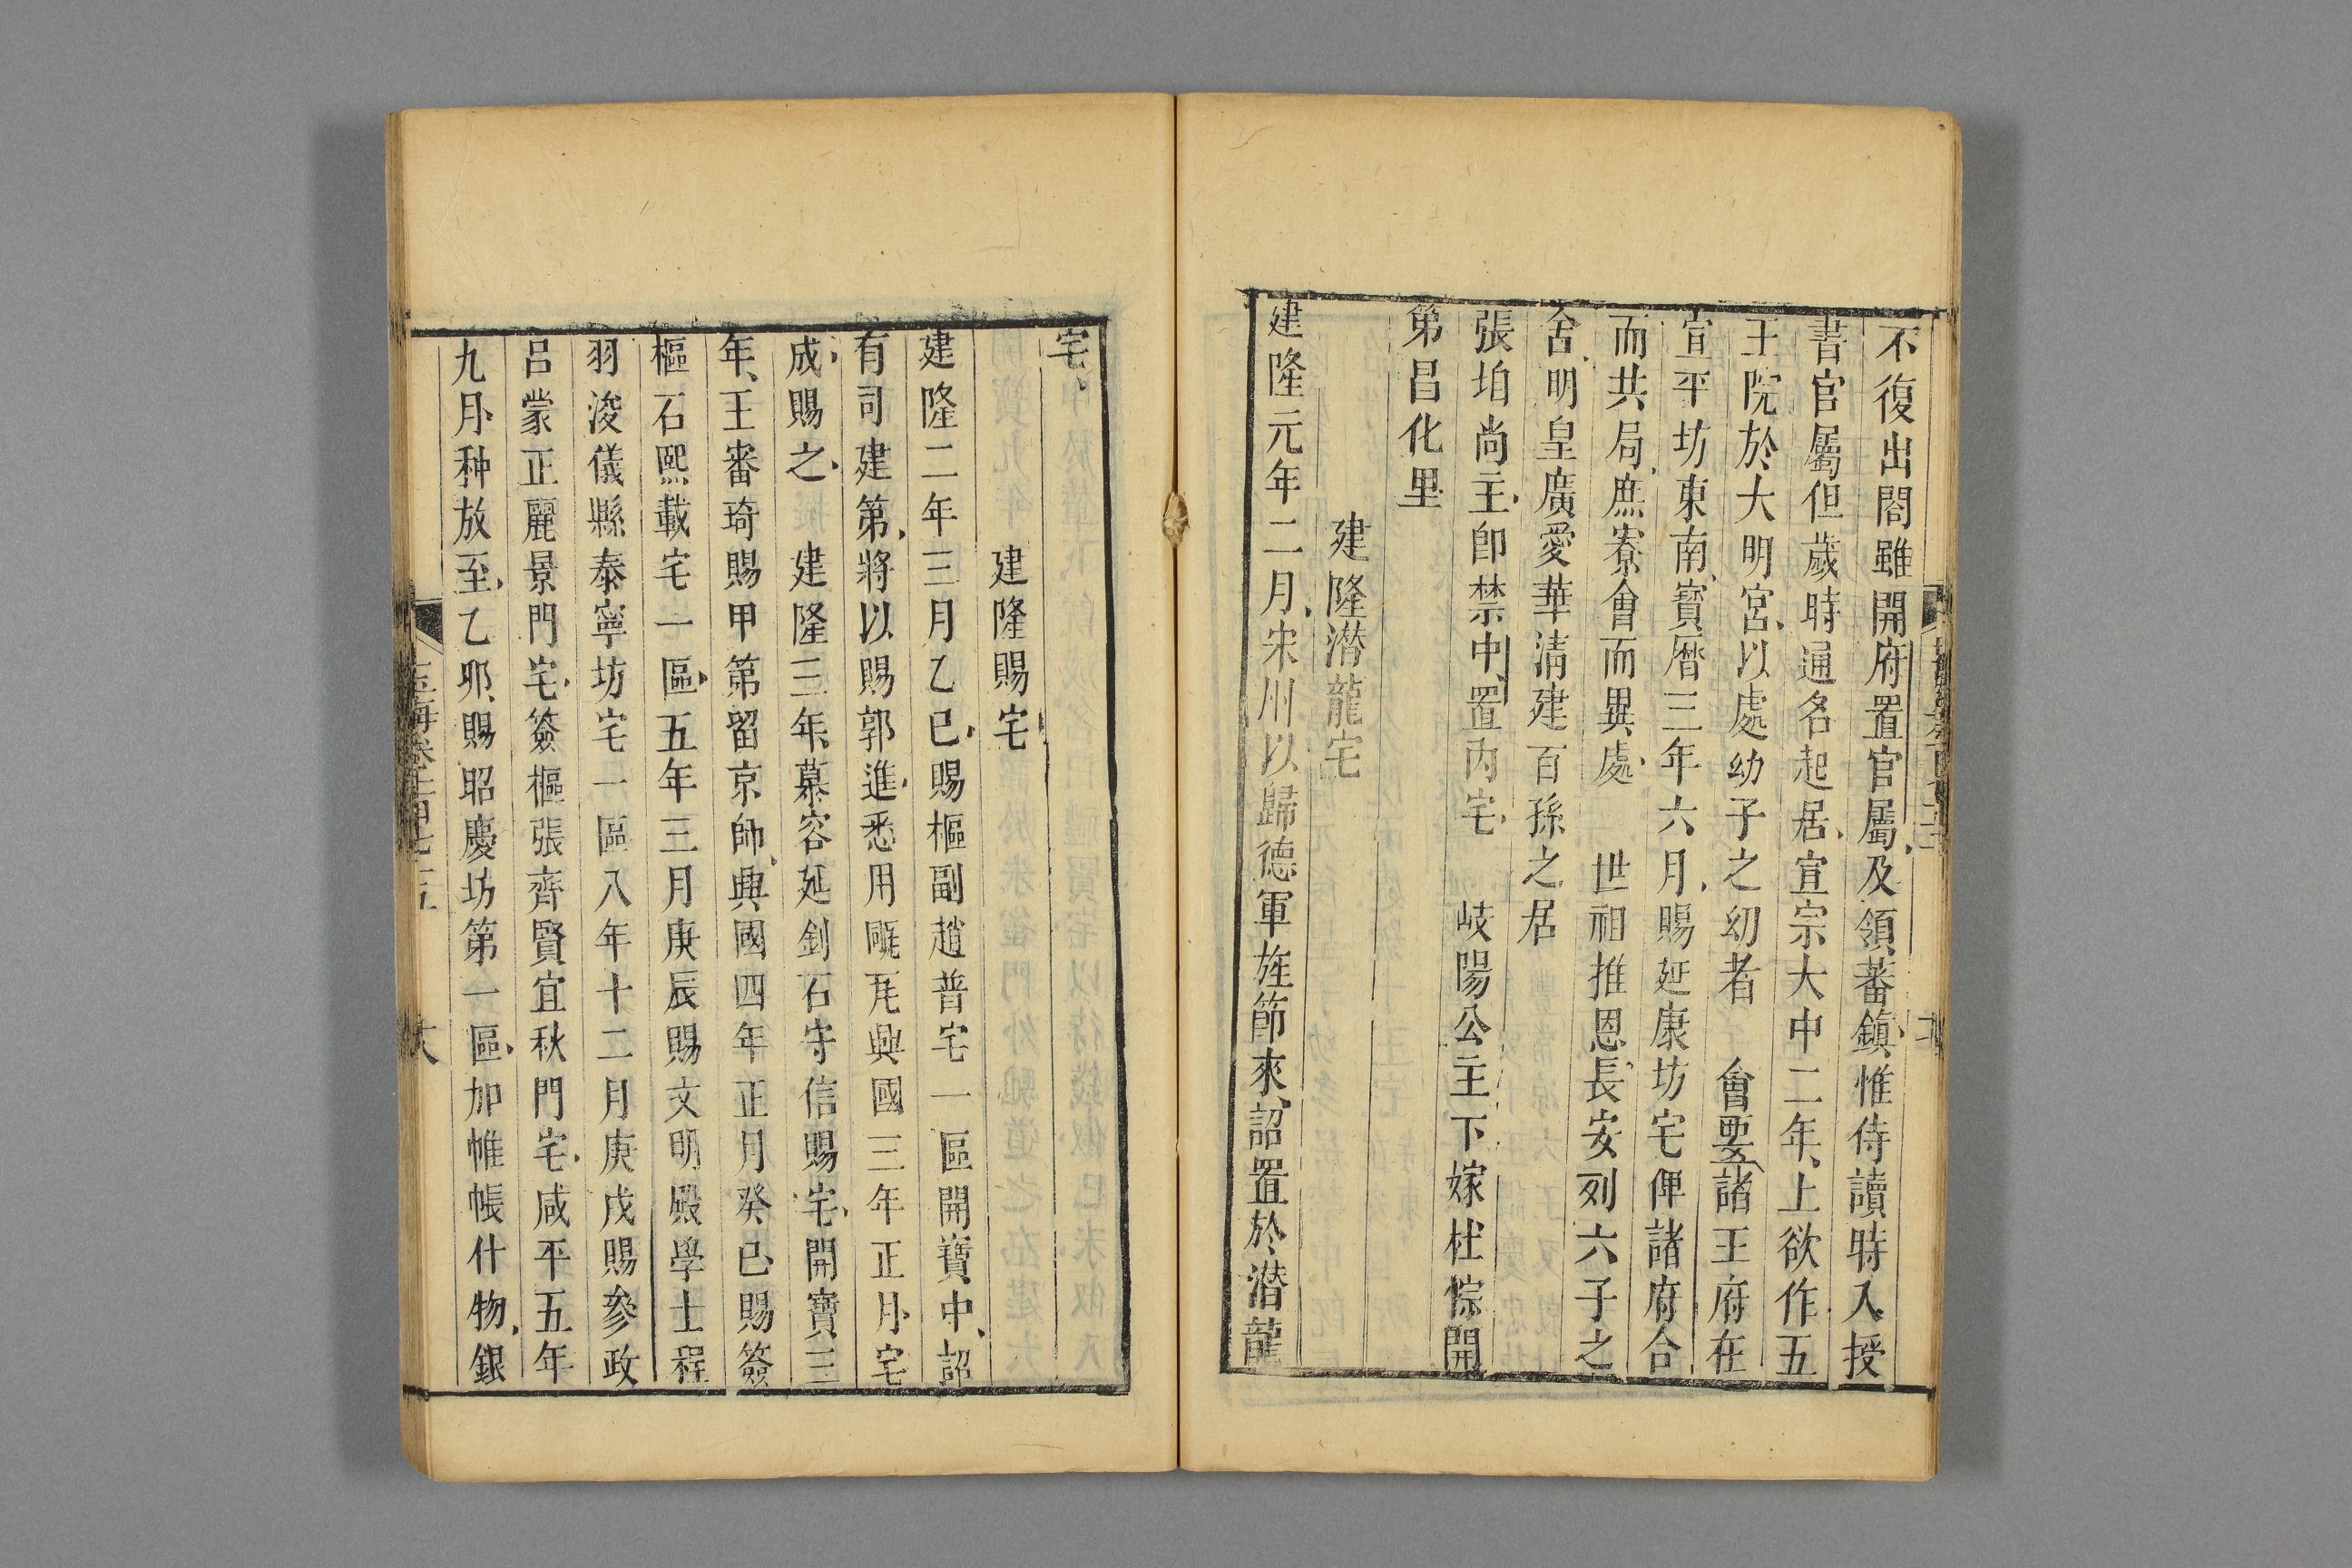 不復出閤雖開府置官屬及領蕃鎮惟侍讀時入授
書官屬但歲時通名起居宣宗大中二年上欲作五
王院於大明宮以處幼子之幼者　會要諸王府在
宣平坊東南寳曆三年六月賜延康坊宅俾諸府合
而共局庶寮會而異處　世祖推恩長安列六子之
舍明皇廣愛華清建百孫之居
張垍尚主即禁中置内宅　岐陽公主下嫁杜悰開
第昌化里
建隆潛龍宅
建隆元年二月宋州以歸德軍旌節來詔置於潛龍
宅
建隆賜宅
建隆二年三月乙巳賜樞副趙普宅一區開寶中詔
有司建第將以賜郭進悉用㼧瓦興國三年正月宅
成賜之　建隆三年慕容延釗石守信賜宅開寶三
年王審琦賜甲第留京師興國四年正月癸巳賜簽
樞石熙載宅一區五年三月庚辰賜文明殿學士程
羽浚儀縣泰寧坊宅一區八年十二月庚戌賜參政
呂蒙正麗景門宅簽樞張齊賢宜秋門宅咸平五年
九月种放至乙卯賜昭慶坊第一區加帷帳什物銀